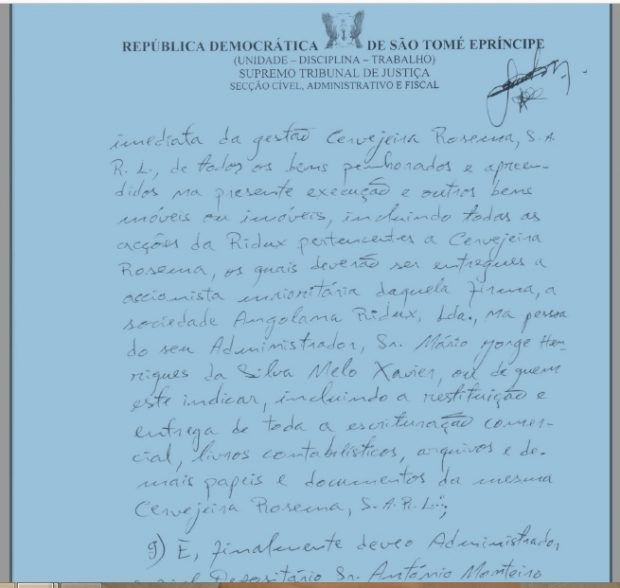 REPÚBLICA DEMOCRÁTICA DE SÃO TOMÉ EPRÍNCIPE
(UNIDADE – DISCIPLINA – TRABALHO)
SUPREMO TRIBUNAL DE JUSTIÇA
SECÇÃO CÍVEL, ADMINISTRATIVO E FISCAL
imediata da gestão Cervejeira Rosema, S.A.
R.L., de todos os bens penhorados e apreen-
didos na presente execução e outros bens
móveis ou imóveis, incluindo todas as
acções da Ridux pertencentes a Cervejeira
Rosema, os quais deverão ser entregues a
accionista maioritária daquela firma, a
sociedade Angolana Ridux, Lda., na pessoa
do seu Administrador, Sr. Mário Jorge Hen-
riques da Silva Melo Xavier, ou de quem
este indicar, incluindo a restituição e
entrega de toda a escrituração comer-
cial, livros contabilísticos, arquivos e de-
mais papeis e documentos da mesma
Cervejeira Rosema, S.A.R.L.";
g) E, finalmente deveo Administrador,
Depositário Sr. António Monteiro